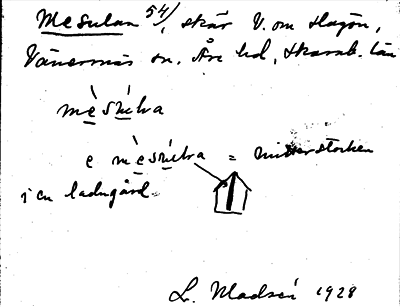 Mesulan 54/, skär V. om Hagön,
Vänersnäs sn. Åse hd, Skarab. län
mèsúlva
e mèsúlva = mitterstocken
i en ladugård
L. Madsén 1928